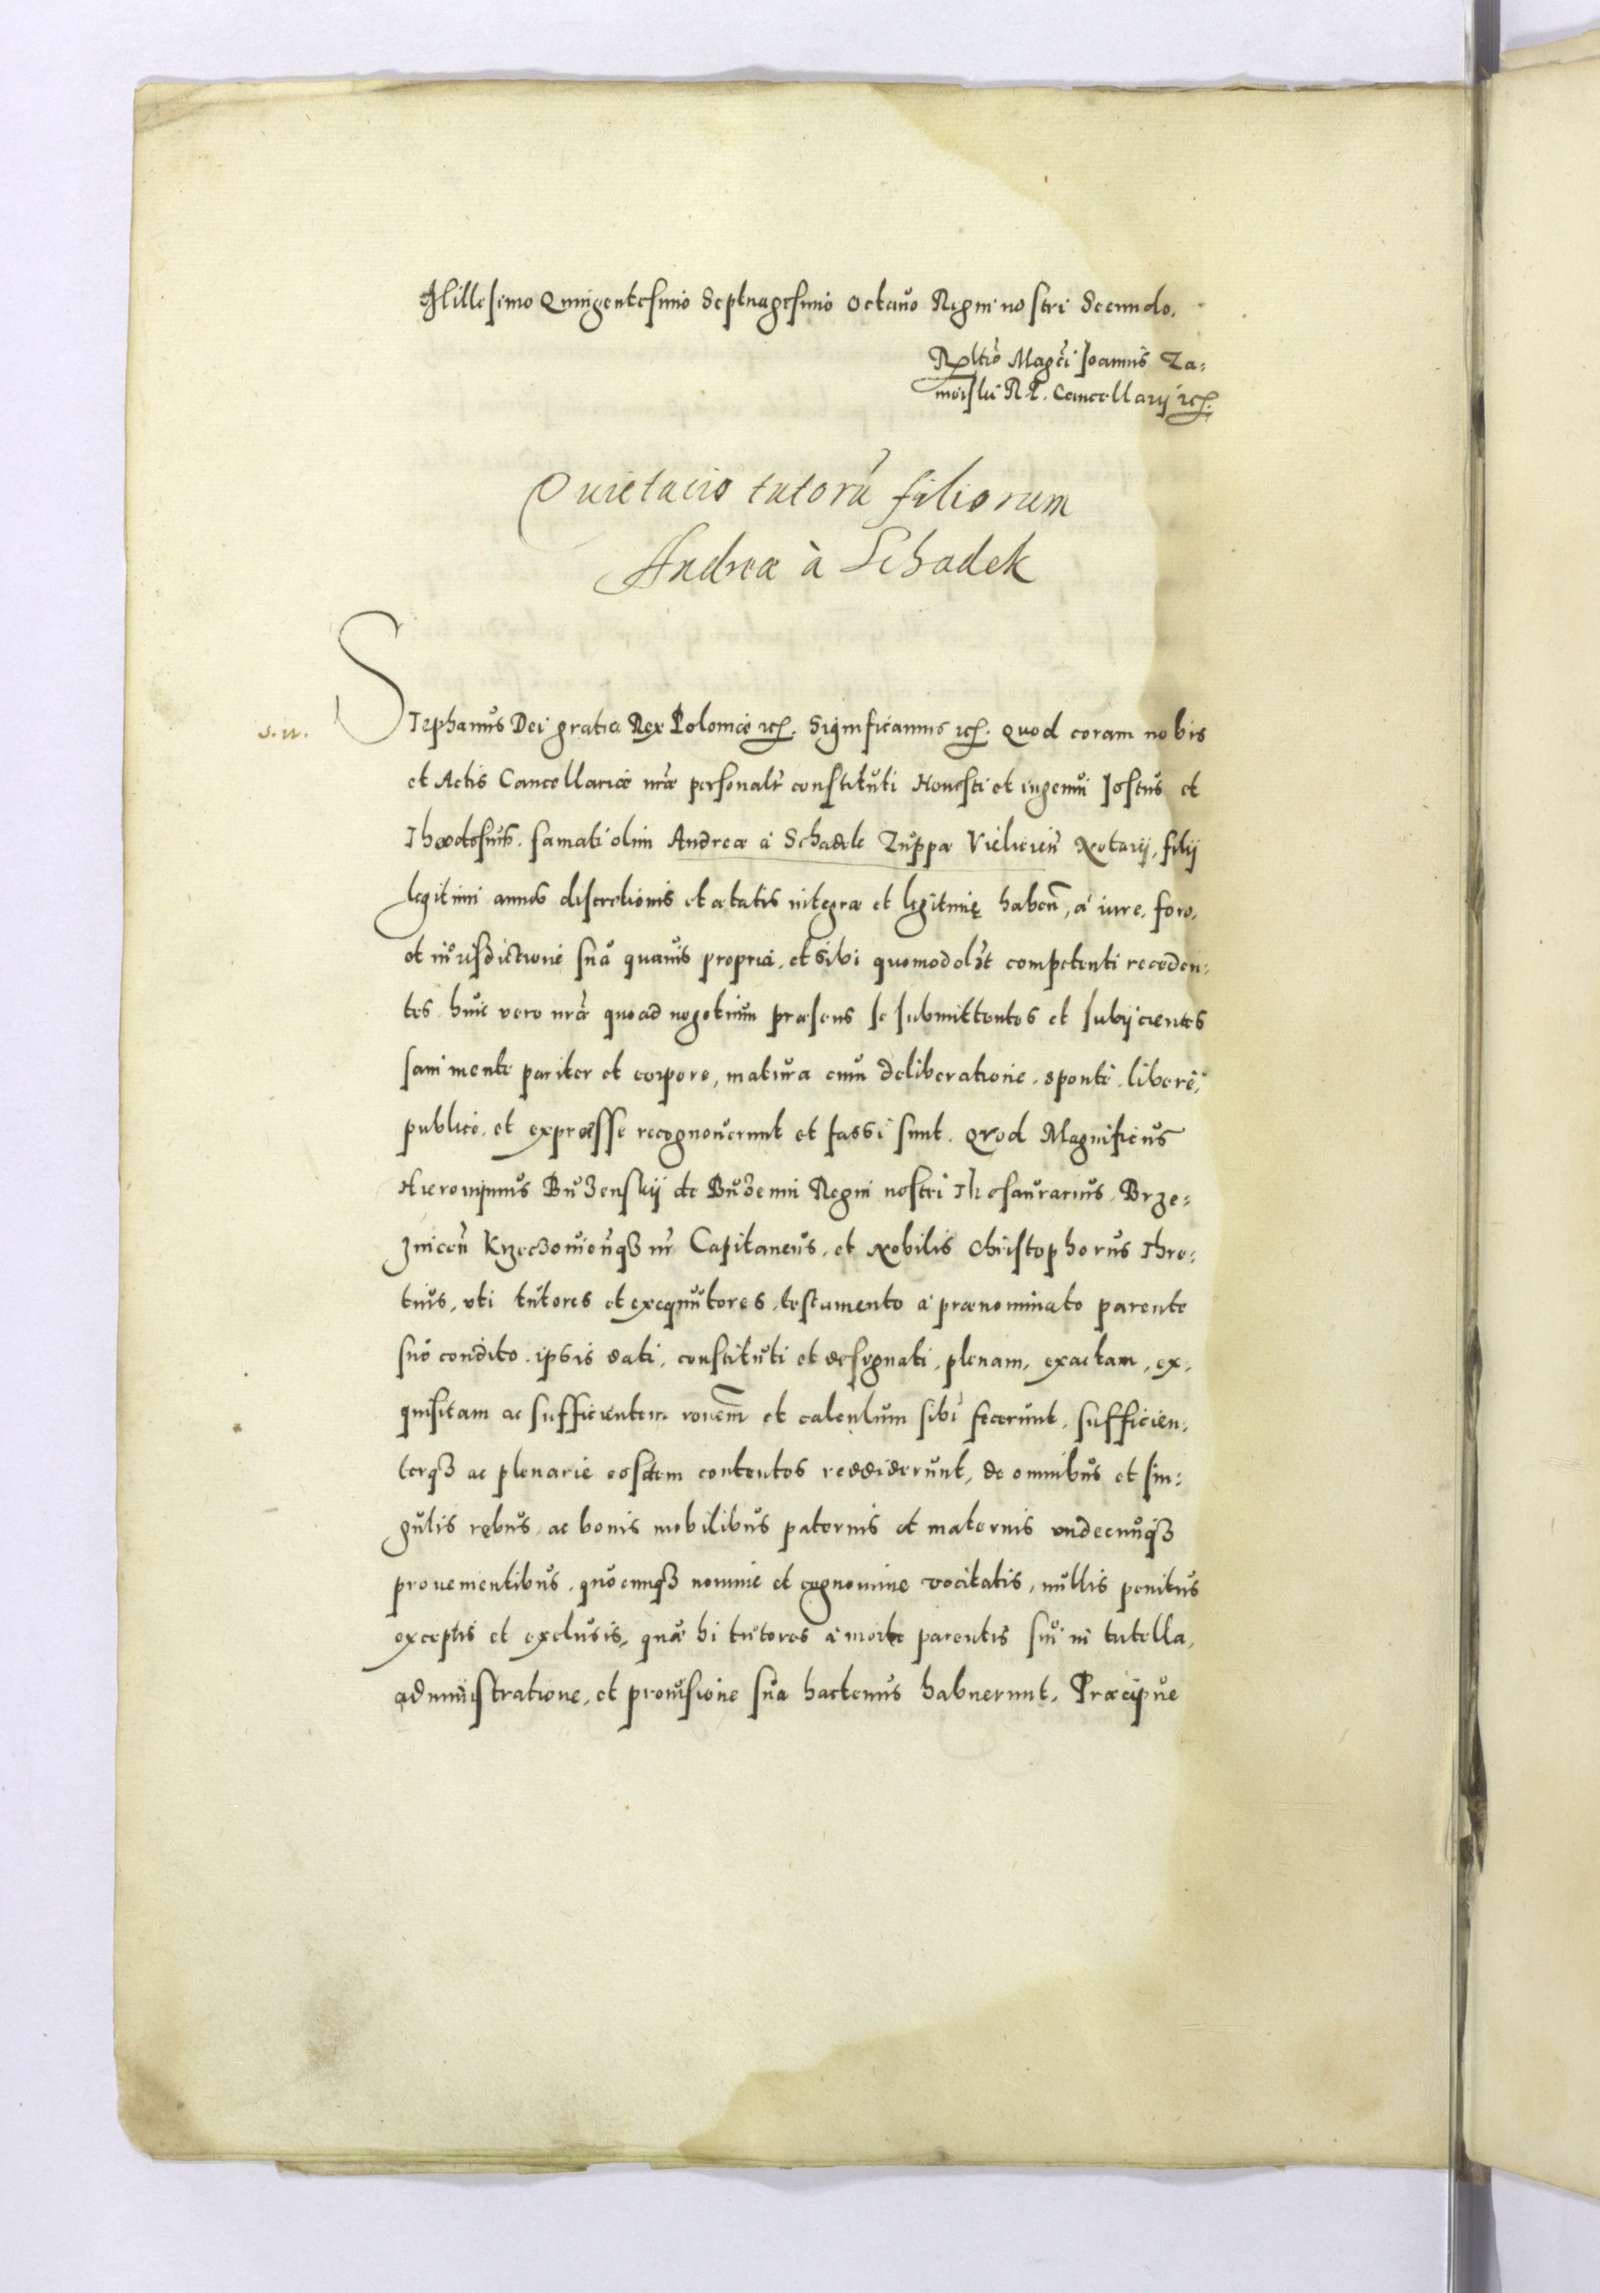 Millesimo Quingentesimo Septuagesimo Octauo Regni nostri Secundo.
Rltio Magci Joannis Za=
moiski R. P. Cancellarij etc.
Quietacio tutorũ filiorum
Andreæ à Schadek
s. n.
Stephanus Dei gratia Rex Poloniæ etc. Significamus etc. Quod coram nobis
et Actis Cancellariæ nræ personalr constituti Honesti et ingenui Jostus et
Theodosius. famati olim Andreæ à Schadek Zuppæ Vielicien Notarij, filij
legitimi annos discretionis et ætatis integræ et legitimę haben, à iure, foro,
et iurisdictione suâ quauis propria, et sibi quomodolt competenti receden=
tes huic vero nræ quoad negotium præsens se submittentes et subijcientes
sani mente pariter et corpore, matura cum deliberatione, sponte, liberè,
publice, et expresse recognouerunt et fassi sunt. Quod Magnificus
Hieronimus Bużenskij de Bużenin Regni nostri Thesaurarius, Brze=
znicen Krzeczouienqз nr Capitaneus, et Nobilis Christophorus Thre=
tius, vti tutores et exequutores, testamento à prænominato parente
suo condito, ipsis dati, constituti et designati, plenam, exactam, ex=
quisitam ac sufficientem ronem et calculum sibi fecerunt, sufficien=
terqз ac plenarie eosdem contentos reddiderunt, de omnibus et sin=
gulis rebus, ac bonis mobilibus paternis et maternis vndecunqз
prouenientibus, quocunqз nomine et cognomine vocitatis, nullis penitus
exceptis et exclusis, quæ hi tutores à morte parentis sui in tutella,
administratione, et prouisione sua hactenus habuerunt. Præcipue